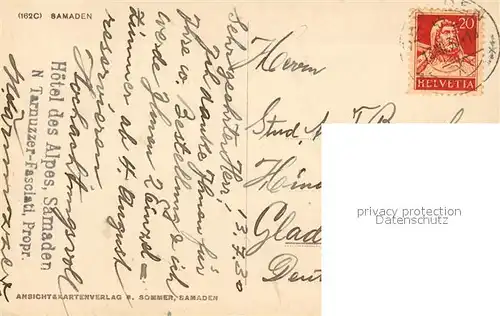 (162C) SAMADEN
13.7.30
Sehr geehrter Herr!
Ich danke Ihnen für
Ihre w. Bestellung & ich
werde Ihnen 2 Einzel=
zimmer ab 4. August
reservieren.
Hochachtungsvoll
Hôtel des Alpes, Samaden
N Tarnuzzer-Fasciati, Propr.
ANSICHTSKARTENVERLAG R. SOMMER, SAMADEN
20
HELVETIA
Herrn
Stud.
Glad
Deut
privacy protection
Oldthing.de